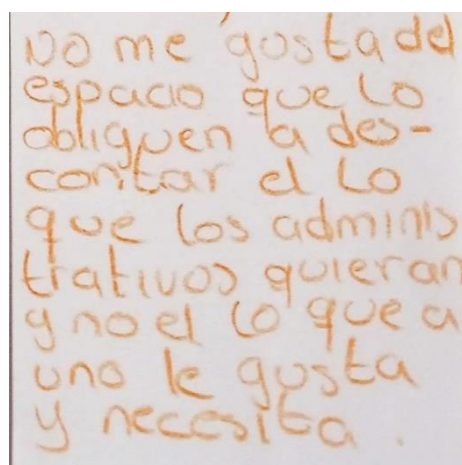 No me gusta del
espacio que lo
obliguen a des-
contar el lo
que los adminis
trativos quieran
y no el lo que a
uno le gusta
y necesita.